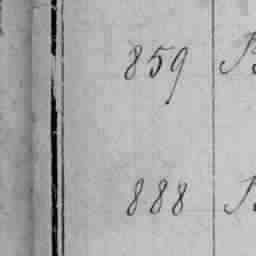 859
888